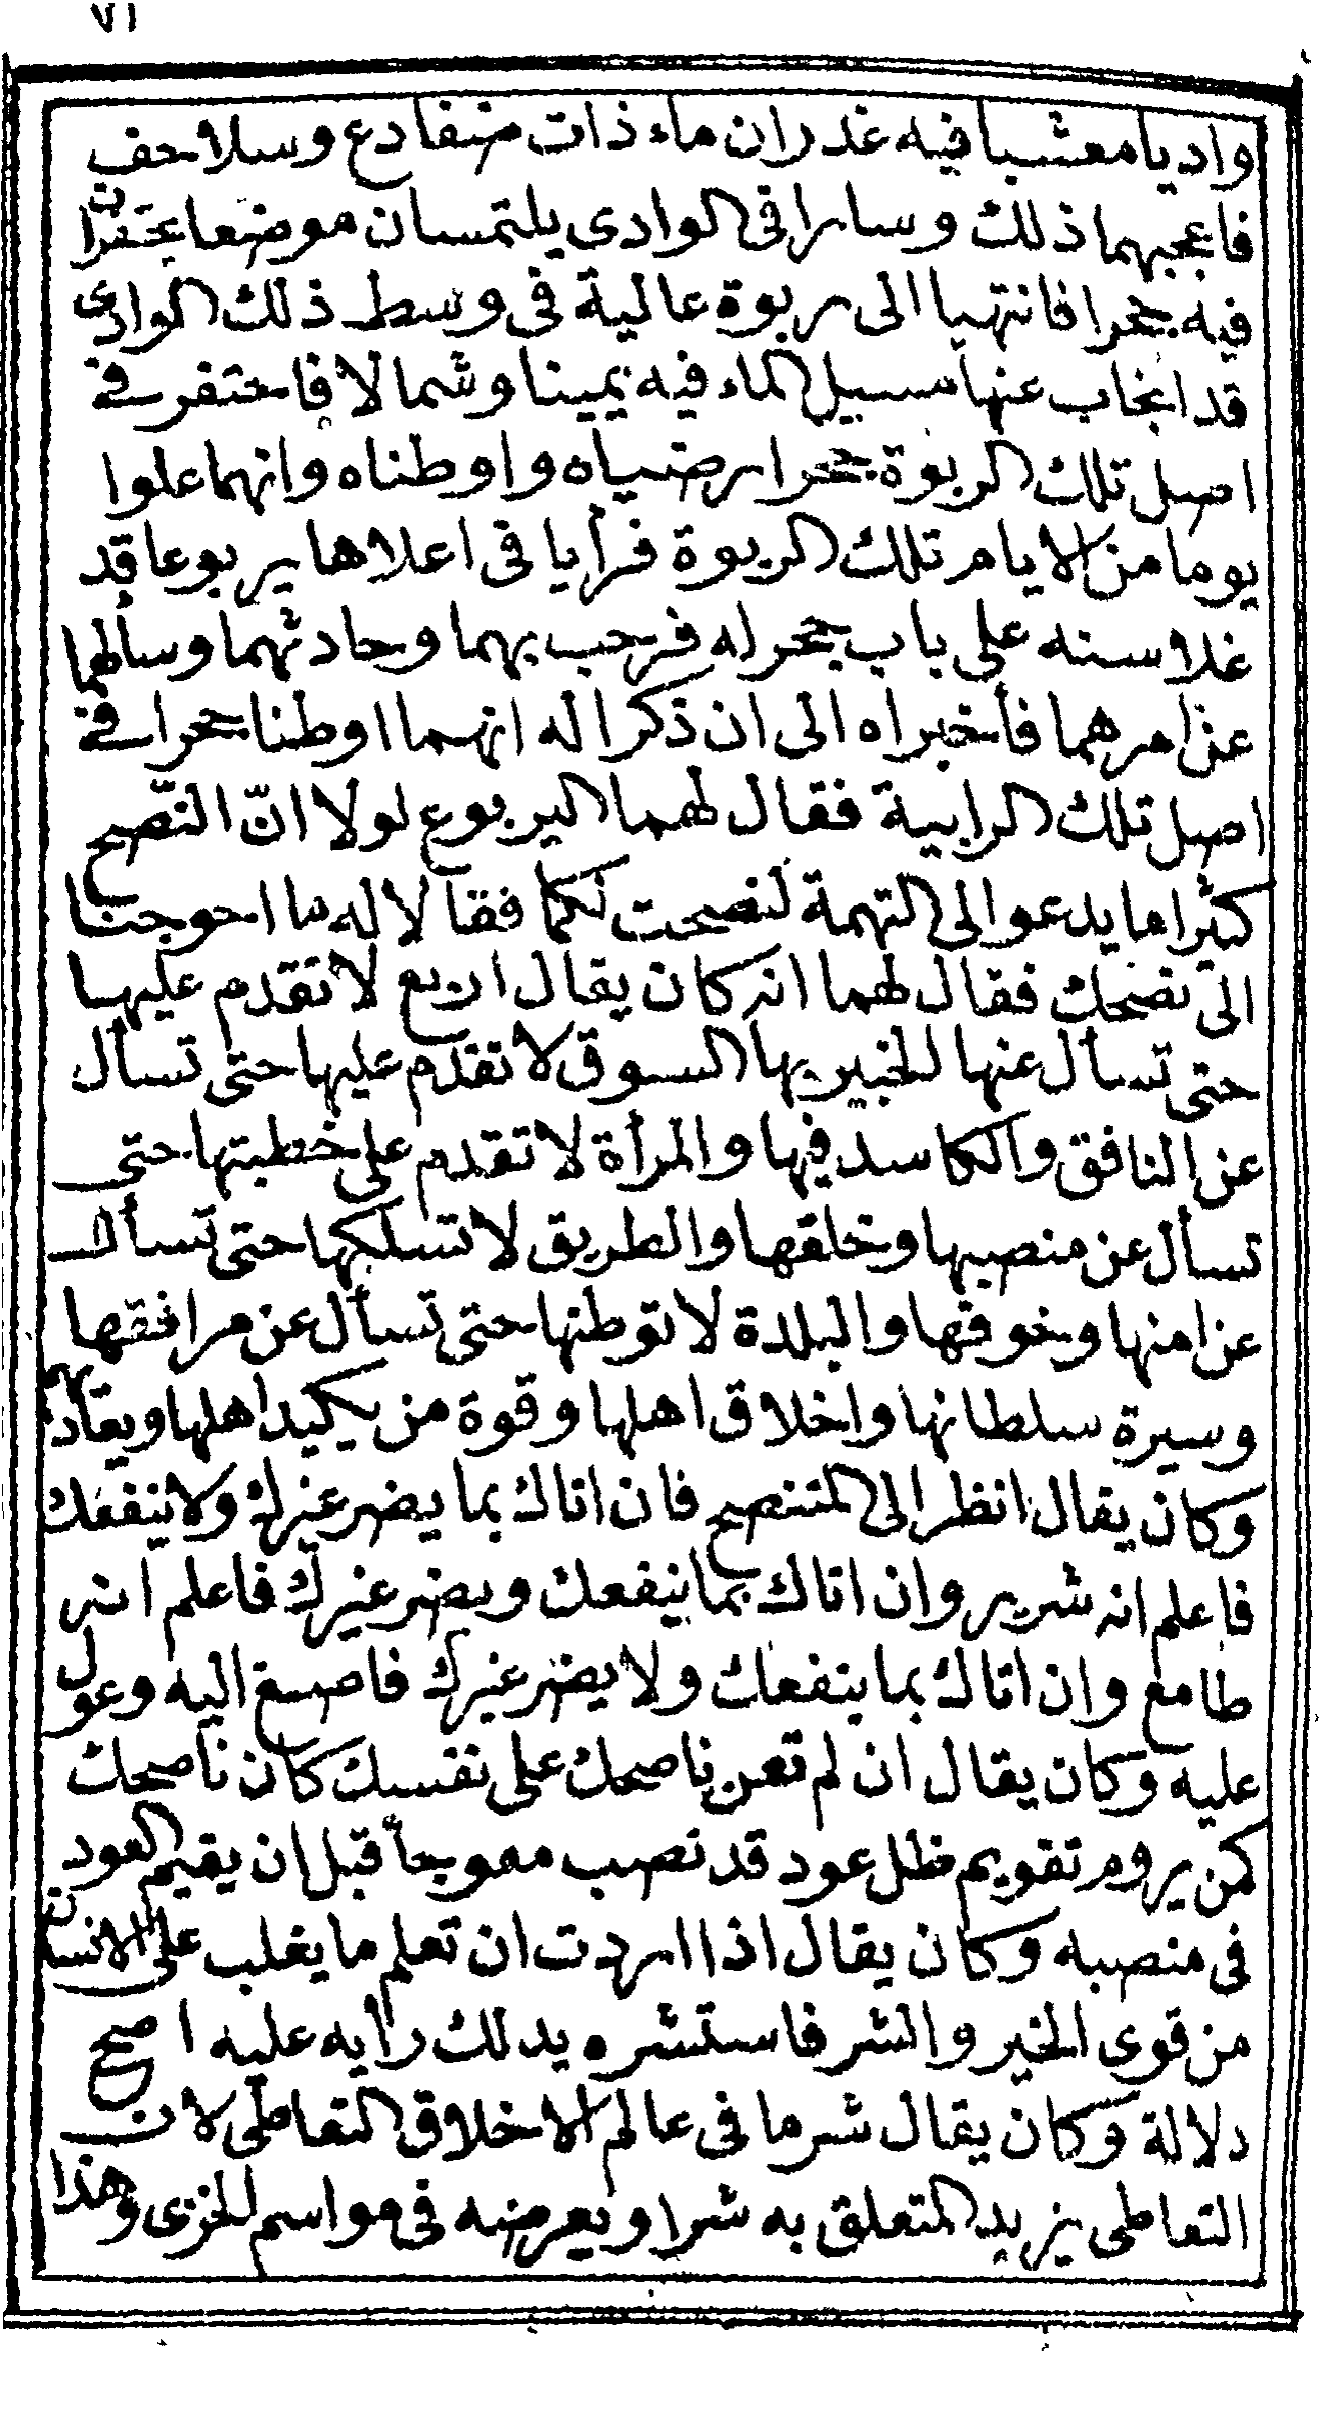 ٧١
واديا معشبا فيه غدران ماء ذات ضفادع وسلاحف
فاعجبهما ذلك وسارا فى الوادى يلتمسان موضعا يحتفران
فيه جحرا فانتهيا الى ربوة عالية فى وسط ذلك الوادى
قد انجاب عنها سبيل الماء فيه يمينا وشمالا فاحتفر فى
اصل تلك الربوة جحرا رضياه واوطناه وانهما علوا
يوما من الايام تلك الربوة فرأيا فى اعلاها يربوعا قد
علا سنه على باب جحر له فرحب بهما وحادثهما وسألهما
عن امرهما فأخبراه الى ان ذكرا له انهما اوطنا جحرا فى
اصل تلك الرابية فقال لهما اليربوع لولا انّ النّصح
كثيرا ما يدعو الى التهمة لنصحت لكما فقالا له ما احوجنا
الى نصحك فقال لهما انه كان يقال اربع لا تقدم عليها
حتى تسأل عنها الخبير بها السوق لا تقدم عليها حتى تسأل
عن النافق والكاسد فيها والمرأة لا تقدم على خطبتها حتى
تسأل عن منصبها وخلقها والطريق لا تسلكها حتى تسأل
عن امنها وخوفها والبلدة لا توطنها حتى تسأل عن مرافقها
وسيرة سلطانها واخلاق اهلها وقوة من يكيد اهلها ويعاديهم
وكان يقال انظر الى المتنصح فان اتاك بما يضر غيرك ولا ينفعك
فاعلم انه شرير وان اتاك بما ينفعك ويضر غيرك فاعلم انه
طامع وان اتاك بما ينفعك ولا يضر غيرك فاصغ اليه وعول
عليه وكان يقال ان لم تعن ناصحك على نفسك كان ناصحك
كمن يروم تقويم ظل عود قد نصب معوجا قبل ان يقيم العود
فى منصبه وكان يقال اذا اردت ان تعلم ما يغلب على الانسان
من قوى الخير والشر فاستشره يدلك رأيه عليه اصح
دلالة وكان يقال شر ما فى عالم الاخلاق التعاطى لان
التعاطى يزيد المتعلق به شرا ويعرضه فى مواسم الخزى وهذا